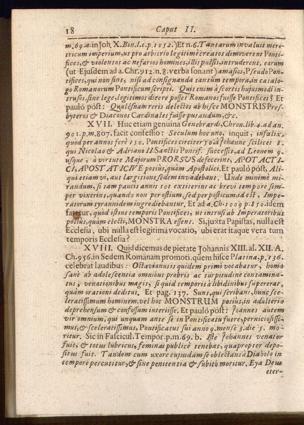 18 Caput II.
m, 69. a. in Joh. X. Bin. l. c. p. 1132.) Et n. 6. Tantarum invaluit meretricum imperium, ut pro arbitrio legitime creatos dimoverent Pontifices, & violentos ac nefarios homines, illis pulsis, intruderent, earum (ut Ejusdem ad a. Chr. 912. n. 8. verba sonant)
Pontifices, qui non sint, nisi ad consignanda tantum tempora, in catalogo Romanorum Pontificum scripti. Quis enim à scortis hujusmodi intrusos, sine lege, legitimos dicere posset Romanos fuisse Pontifices? Et
paulò pòst: Quales nam reris delectos ab hisce MONSTRIS Presbyteros & Diaconos Cardinales fuisse putandum, &c.
XVII. Huc etiam genuina Genebrardi, Chron. lib. 4. ad an.
901. p. m. 807. facit confessio: Seculum hoc uno, inquit, infelix,
quod per annos ferè 150. Pontifices circiter 50. à Johanne scilicet 8.
qui Nicolao & Adriano II. Sanctis Pontif. successit, ad Leonem 9.
usque, à virtute Majorum PRORSUS defecerint, APOTACTICI, APOSTATICIVE potius, quam Apostolici. Et paulò pòst, Aliqui etiam vi, aut largitione sedem invadebant. Unde minimè mirandum, si tam pauci annos tot exstiterint ac brevi tempore semper vixerint, quando non per ostium, sed per posticum
Imperatorum tyrannidem ingrediebantur, Et ad a. Ch. 1003. p. 810. idem
fatetur, quod istius temporis Pontifices, ut intrusi ab Imperatoribus
potius, quàm electi, MONSTRA essent. Si, juxta Papistas, nulla est
Ecclesia, ubi nulla est legitima vocatio, ubi erat itaque vera tum
temporis Ecclesia?
XVIII. Quid dicemus de pietate Johannis XIII. al. XII. A.
Ch. 956. in Sedem Romanam promoti, quem hisce Platina, p. 136.
celebrat laudibus: Ostentationis quidem primi vocabatur, homo
sanè ab adolescentia omnibus probris ac turpitudine contaminatus, venationibus magis, si quid temporis à libidinibus supererat,
quàm orationi deditus, Et pag. 137. Sunt, qui scribant, hunc sceleratissimum hominem, vel hoc MONSTRUM potius, in adulterio
deprehensum & confossum interiisse. Et paulò pòst: Johannes autem
vir omnium, qui unquam ante se in Pontificatu fuere, perniciosissimus, & sceleratissimus, Pontificatus sui anno 9. mense 3. die 5. moritur. Sic in Fascicul. Tempor. p. m. 69. b. Iste Johannes venator
fuit, & totus lubricus, feminas publicè tenebat, quapropter depositus fuit. Tandem cum uxore cujusdam se oblectans à Diabolo in
tempore percutitur, & sine penitentia & subitò moritur, Eya Deus
eter-